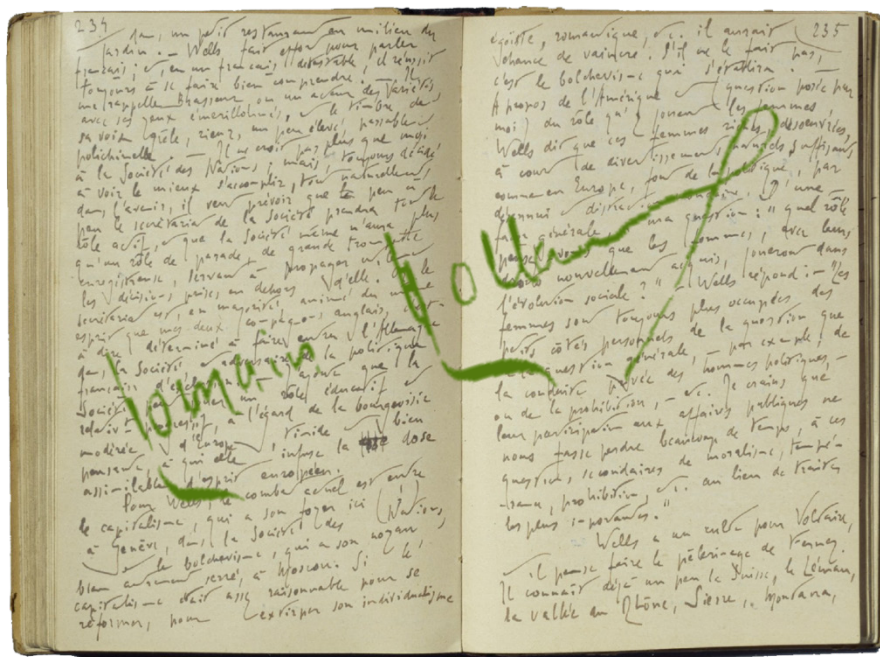 234
dans un petit restaurant au milieu du
jardin. — Wells fait effort pour parler
français; et, en un français détestable, il réussit
toujours à se faire bien comprendre. Il
me rappelle Brasseur ou un acteur des Variétés
avec ses yeux émerillonnés, et le timbre de
sa voix grêle, rieuse, un peu élevée, passable
polichinelle. — Il ne croit pas plus que moi
à la Société des Nations; mais, toujours décidé
à voir le mieux s'accomplir, tout naturellement,
dans l'avenir, il veut prévoir que peu à
peu le secrétariat de la Société prendra tout le
rôle actif, et que la Société même n'aura plus
qu'un rôle de parade, de grande trompette
enregistreuse, servant à propager
les décisions prises en dehors d'elle. le
secrétariat est, en majorité, animé du même
esprit que mes deux compagnons anglais, c'est-
à dire déterminé à faire entrer l'Allemagne
dans la Société, la politique
française d' ajoute que la
Société un rôle éducatif et
relativement progressif, à l'égard de la bourgeoisie
modérée d'Europe, timide et bien
pensante, à qui elle infuse la dose
assimilable d'esprit européen.
Pour Wells, le combat actuel est entre
le capitalisme, qui a son foyer ici
à Genève, dans la Société des Nations,
et le bolchevisme, qui a son noyau,
bien autrement serré, à Moscou. Si le
capitalisme était assez raisonnable pour se
réformer, pour extirper son individualisme
235
égoïste, romantique, etc. il aurait
chance de vaincre. S'il ne le fait pas,
c'est le bolchevisme qui s'établira. —
A propos de l'Amérique et question posée par
moi) du rôle qu'y jouent les femmes,
Wells dit que ces femmes riches, désœuvrées,
à court de divertissements suffisants
comme en Europe, font de la politique, par
d'ennui et distraction
générale, ma question: "quel rôle
pensez-vous que les femmes, avec leurs
droits nouvellement acquis, joueront dans
l'évolution sociale?" — Wells répond: — "Les
femmes sont toujours plus occupées des
petits côtés personnels de la question que
de la question générale, — par exemple, de
la conduite privée des hommes politiques, —
ou de la prohibition, — etc. Je crains que
leur participation aux affaires publiques ne
nous fasse perdre beaucoup de temps, à ces
questions secondaires de moralisme, tempé-
-rance, prohibition, etc. au lieu de traiter
les plus importantes."
Wells a un culte pour Voltaire,
et il pense faire le pèlerinage de Ferney.
Il connaît déjà un peu la Suisse, le Léman,
la vallée du Rhône, Sierre, Montana,
romain rolland